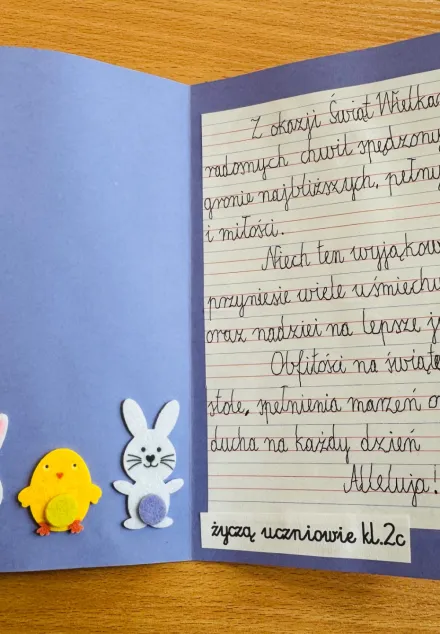 Z okazji Świąt
radosnych chwil
gronie najbliższych, pełny
i miłości.
Niech ten
przyniesie wiele uśmiechu
oraz nadziei na lepsze
Obfitości na
stole, spełnienia marzeń
ducha na każdy dzień
Alleluja!
życzą uczniowie kl.2c